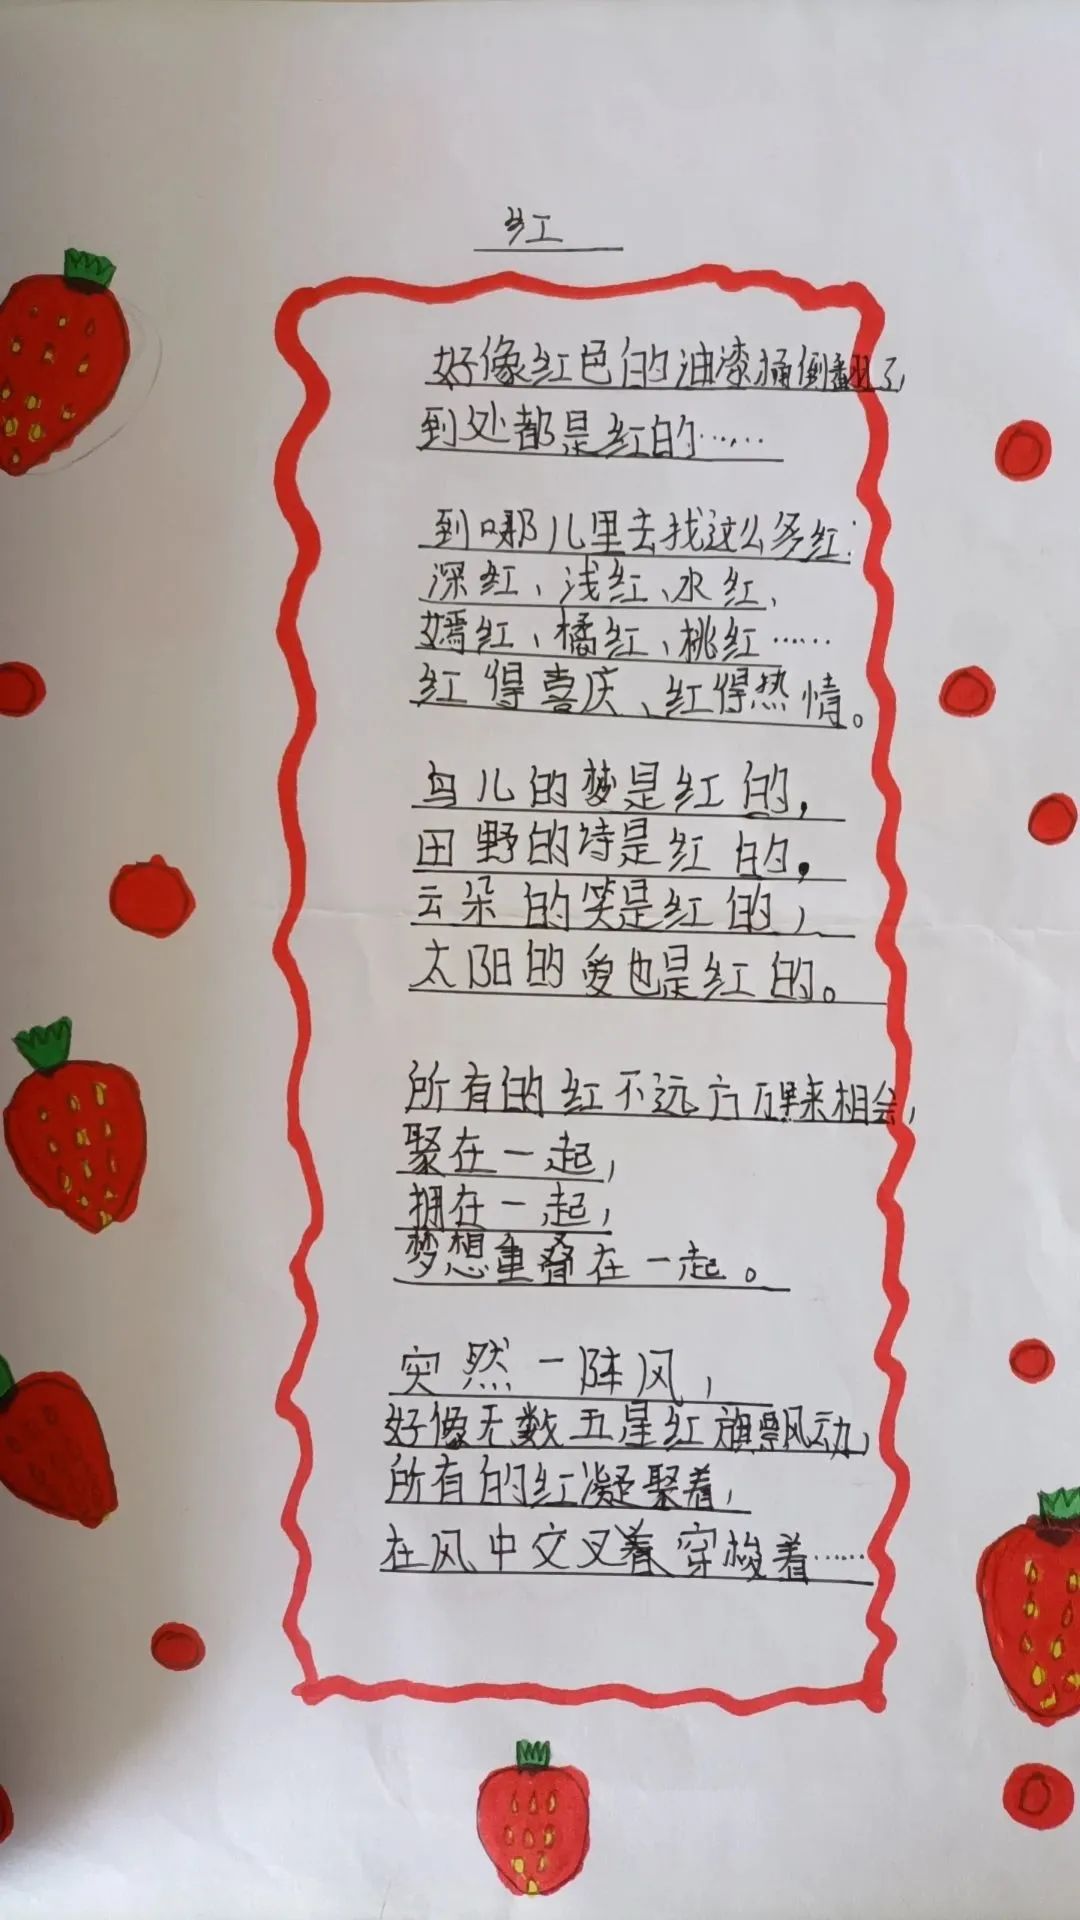 红
好像红色的油漆桶倒翻了,
到处都是红的……
到哪儿里去找这么多红:
深红、浅红、水红、
嫣红、橘红、桃红……
红得喜庆、红得热情。
鸟儿的梦是红的,
田野的诗是红的,
云朵的笑是红的,
太阳的爱也是红的。
所有的红不远万里来相会,
聚在一起,
拥在一起,
梦想重叠在一起。
突然一阵风,
好像无数五星红旗飘动,
所有的红凝聚着,
在风中交叉着穿梭着……